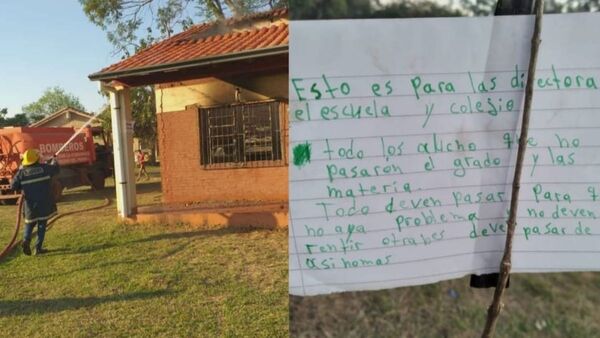 BOMBEROS
Esto es para las directora
el escuela y colegio
todo los alucho que no
pasaron el grado y las
materia.
Todo deven pasar Para q
no aya problema no deven
rentir otrabes deven pasar de
asi nomas